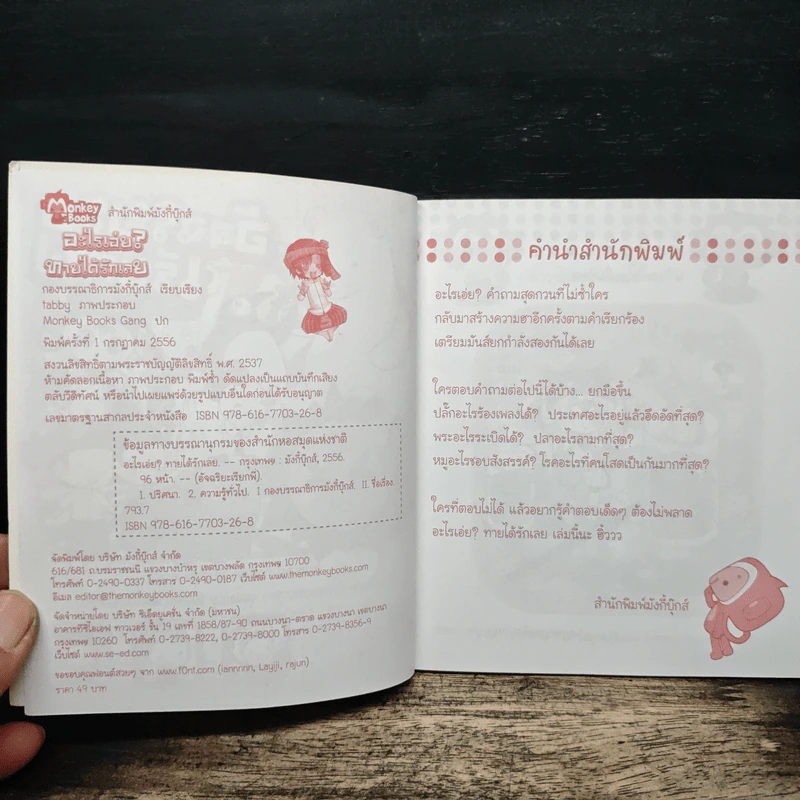 Monkey Books สำนักพิมพ์มังกี้บุ๊กส์
อะไรเอ่ย?
ทายได้รักเลย
กองบรรณาธิการมังกี้บุ๊กส์ เรียบเรียง
tabby ภาพประกอบ
Monkey Books Gang ปก
พิมพ์ครั้งที่ 1 กรกฎาคม 2556
สงวนลิขสิทธิ์ตามพระราชบัญญัติลิขสิทธิ์ พ.ศ. 2537
ห้ามคัดลอกเนื้อหา ภาพประกอบ พิมพ์ซ้ำ ดัดแปลงเป็นแถบบันทึกเสียง
ตลับวีดิทัศน์ หรือนำไปเผยแพร่ด้วยรูปแบบอื่นใดก่อนได้รับอนุญาต
เลขมาตรฐานสากลประจำหนังสือ ISBN 978-616-7703-26-8
ข้อมูลทางบรรณานุกรมของสำนักหอสมุดแห่งชาติ
อะไรเอ่ย? ทายได้รักเลย. -- กรุงเทพฯ : มังกี้บุ๊กส์, 2556.
96 หน้า. -- (อัจฉริยะเรียกพี่).
1. ปริศนา. 2. ความรู้ทั่วไป. I กองบรรณาธิการมังกี้บุ๊กส์. II. ชื่อเรื่อง.
793.7
ISBN 978-616-7703-26-8
จัดพิมพ์โดย บริษัท มังกี้บุ๊กส์ จำกัด
616/681 ถ.บรมราชชนนี แขวงบางบำหรุ เขตบางพลัด กรุงเทพฯ 10700
โทรศัพท์ 0-2490-0337 โทรสาร 0-2490-0187 เว็บไซต์ www.themonkeybooks.com
อีเมล editor@themonkeybooks.com
จัดจำหน่ายโดย บริษัท ซีเอ็ดยูเคชั่น จำกัด (มหาชน)
อาคารทีซีไอเอฟ ทาวเวอร์ ชั้น 19 เลขที่ 1858/87-90 ถนนบางนา-ตราด แขวงบางนา เขตบางนา
กรุงเทพฯ 10260 โทรศัพท์ 0-2739-8222, 0-2739-8000 โทรสาร 0-2739-8356-9
เว็บไซต์ www.se-ed.com
ขอขอบคุณฟอนต์สวยๆ จาก www.f0nt.com (iannnnn, Layiji, rajun)
ราคา 49 บาท
คำนำสำนักพิมพ์
อะไรเอ่ย? คำถามสุดกวนที่ไม่ซ้ำใคร
กลับมาสร้างความฮาอีกครั้งตามคำเรียกร้อง
เตรียมมันส์ยกกำลังสองกันได้เลย
ใครตอบคำถามต่อไปนี้ได้บ้าง... ยกมือขึ้น
ปลั๊กอะไรร้องเพลงได้? ประเทศอะไรอยู่แล้วอึดอัดที่สุด?
พระอะไรระเบิดได้? ปลาอะไรลามกที่สุด?
หมูอะไรชอบสังสรรค์? โรคอะไรที่คนโสดเป็นกันมากที่สุด?
ใครที่ตอบไม่ได้ แล้วอยากรู้คำตอบเด็ดๆ ต้องไม่พลาด
อะไรเอ่ย? ทายได้รักเลย เล่มนี้นะ ฮิ้ววว
สำนักพิมพ์มังกี้บุ๊กส์